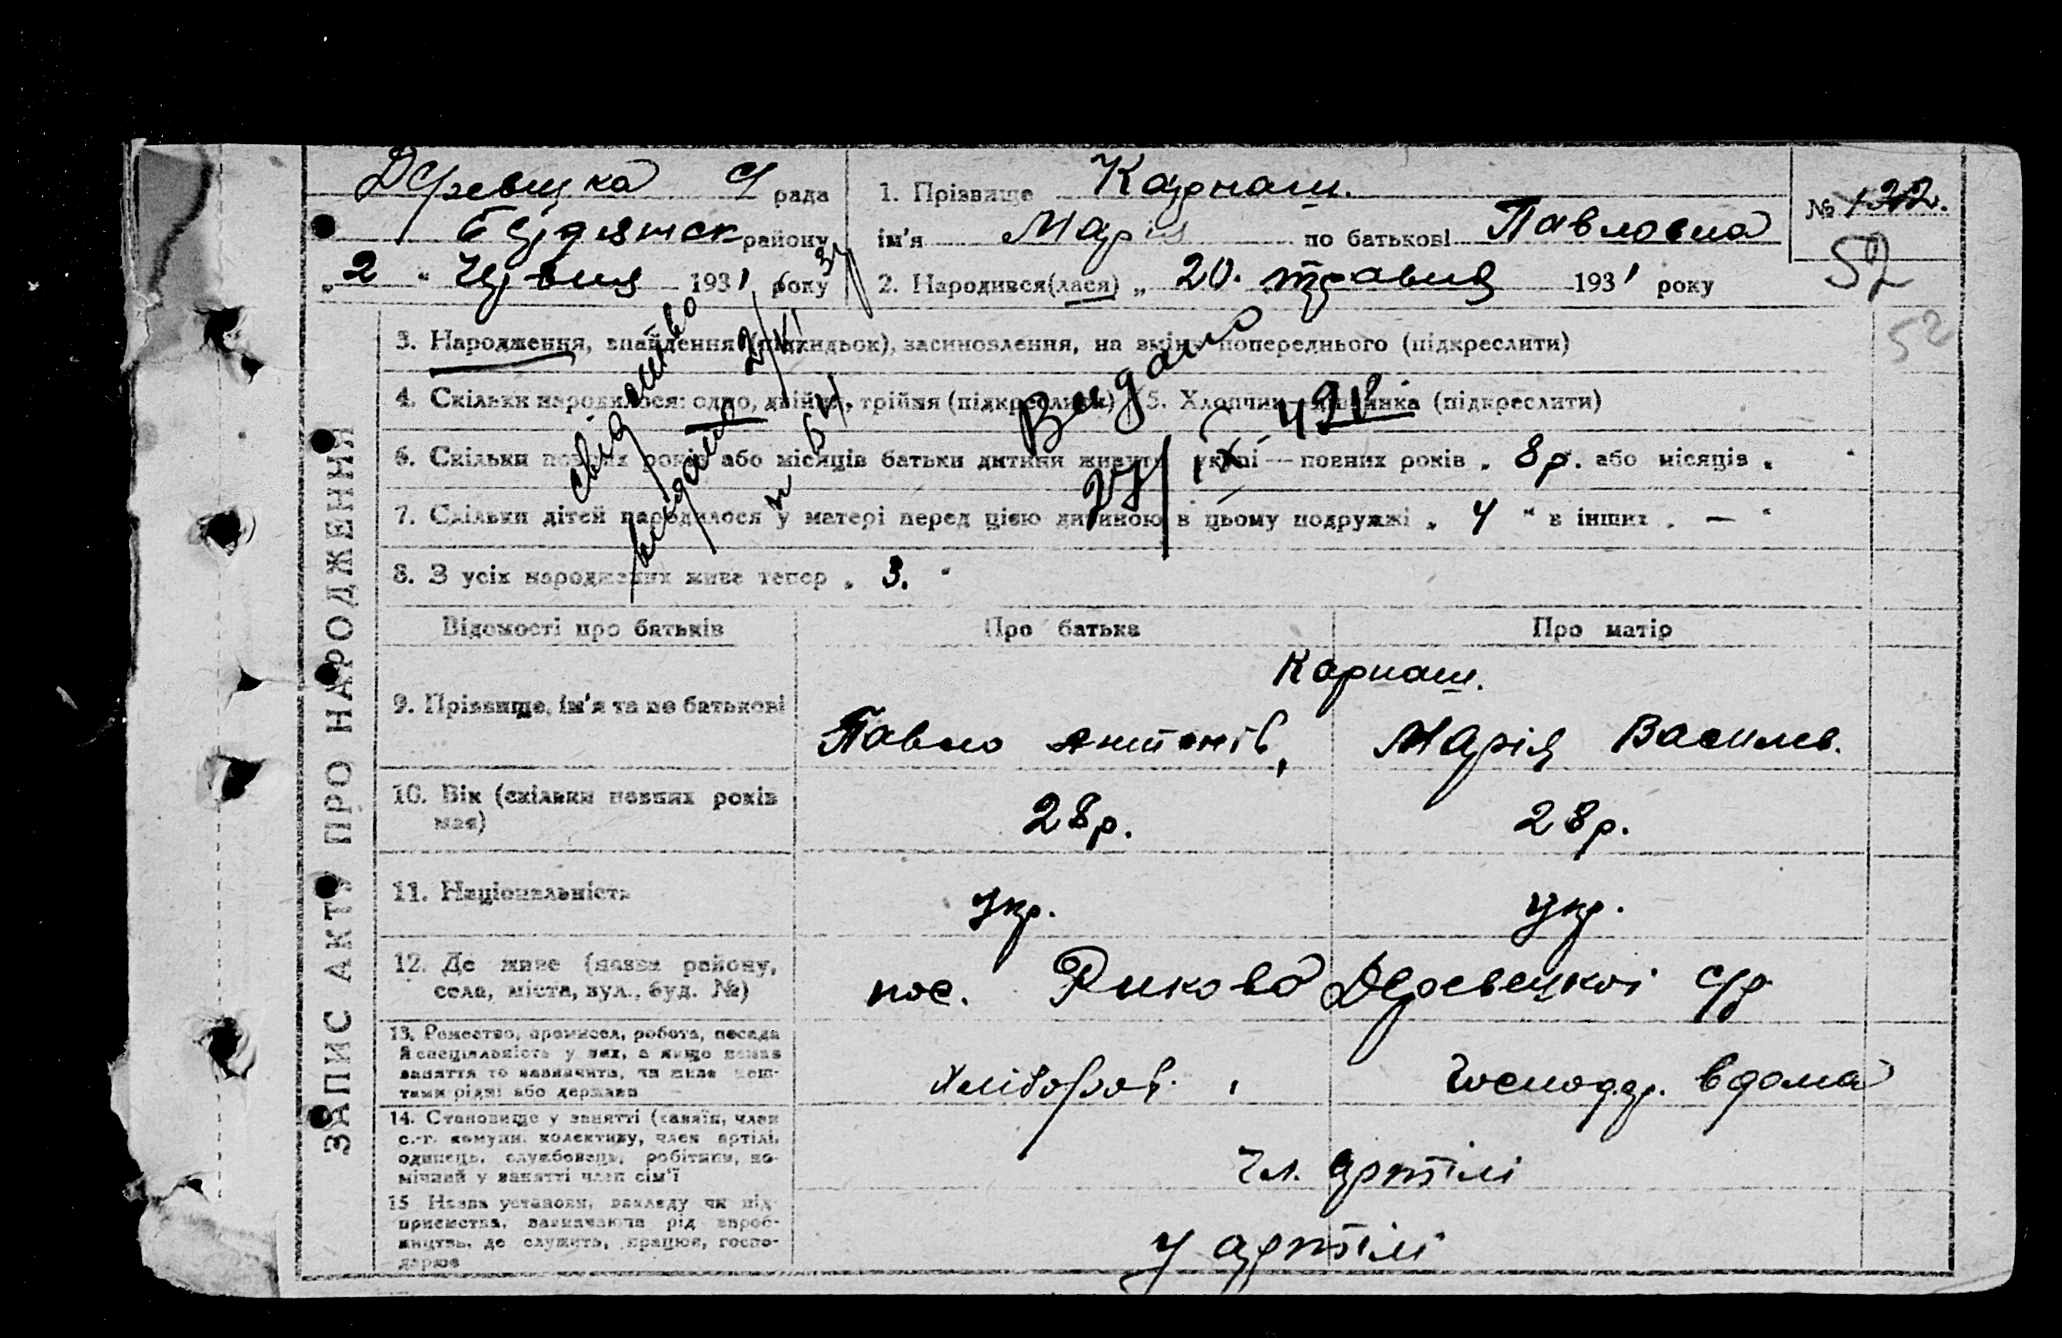 Деревецка с/рада
району
"2" Червня 1931 року
1. Прізвище Карнаш.
ім'я Марія по батькові Павловна
2. Народився(лася) „ 20. травня 1931 року
№ 122.
52
52
ЗАПИС АКТУ ПРО НАРОДЖЕННЯ
3. Народження, знайдення (підкидьок), засиновлення, на зміну попереднього (підкреслити)
4. Скільки народилося: одно, двійня, трійня (підкреслити) 5. Хлопчик—дівчинка (підкреслити)
6. Скільки повних років або місяців батьки дитини живуть укупі—повних років „ 8 р. або місяців „ "
7. Скільки дітей народилося у матері перед цією дитиною в цьому подружжі „ 4 " в інших „ — "
8. З усіх народжених живе тепер „ 3. "
Видано
27/IX 42 р
видано
Відомості про батьків Про батька Про матір
Карнаш.
9. Прізвище, ім'я та по батькові Павло Антонів, Марія Василів.
10. Вік (скільки повних років має) 28 р. 28 р.
11. Національність укр. укр.
12. Де живе (назва району, села, міста, вул., буд. №) пос. Риково Деревецкої с/р
13. Ремество, промисел, робота, посада й спеціяльність у них, а якщо немає заняття то зазначить, чи живе кош-
тами рідні або держави Хлібороб. Господар. вдома
14. Становище у занятті (хазяїн, член
с.-г. комуни, колективу, член артілі,
одинець, службовець, робітник, по-
мічний у занятті член сім'ї чл. артілі
15 Назва установи, закладу чи під-
приємства, зазначаючи рід вироб-
ництва, де служить, працює, госпо-
дарює у артілі